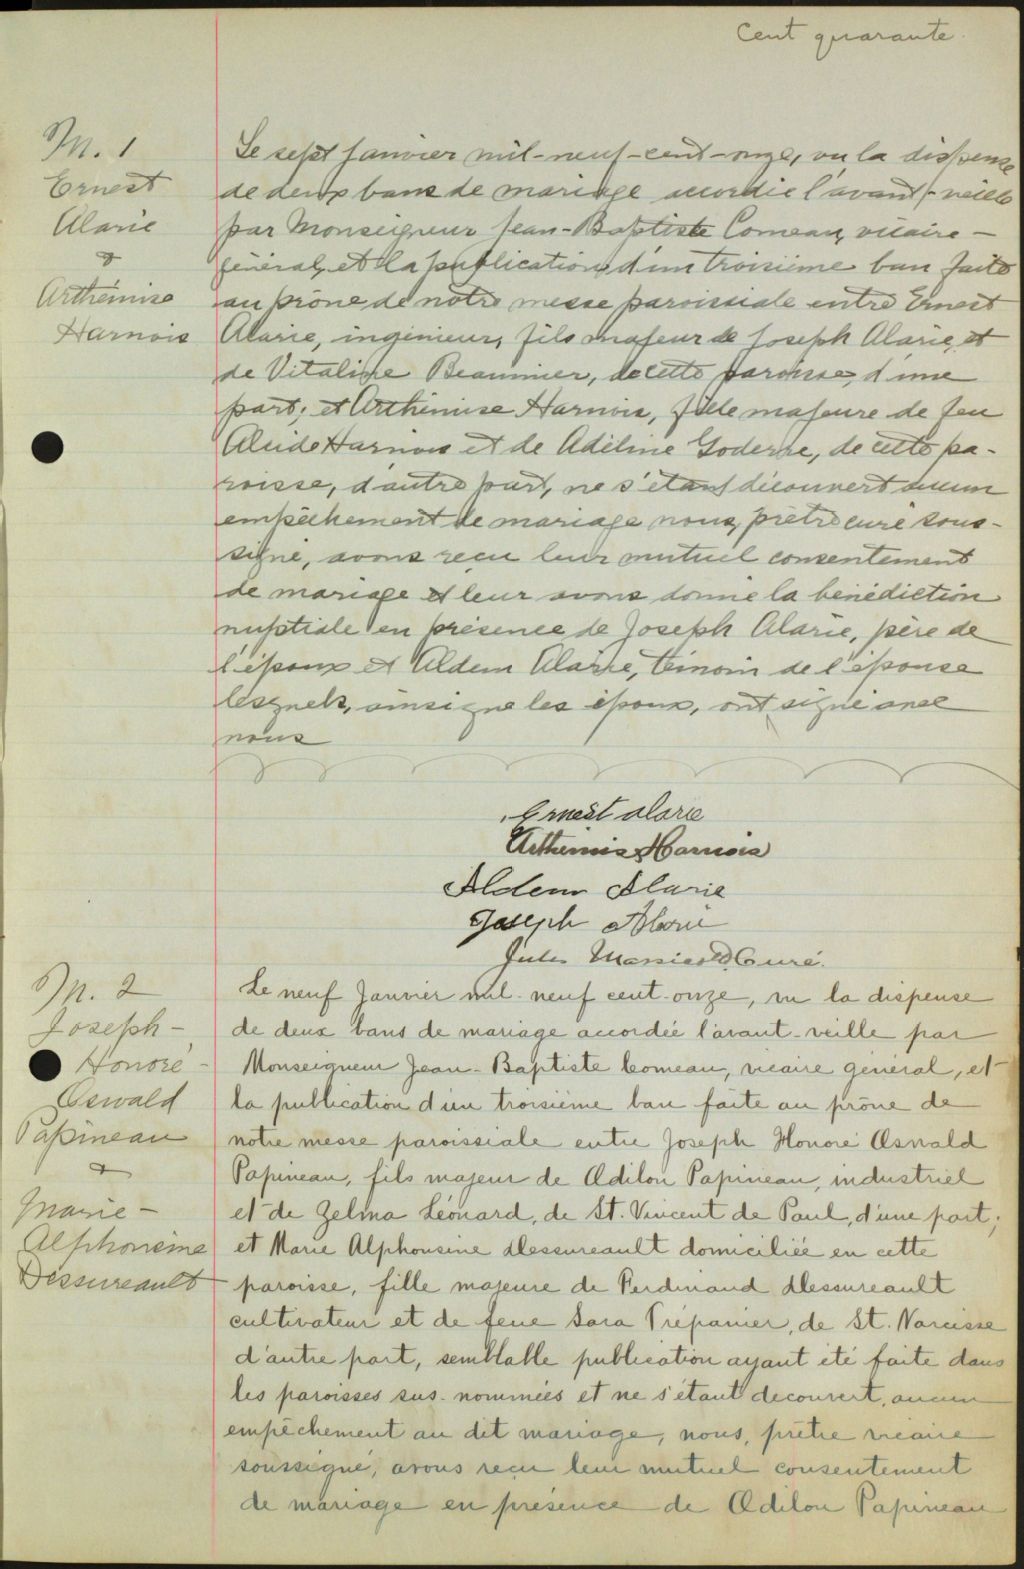 Cent quarante.
M. 1
Ernest
Alarie
&
Arthémise
Harnois
Le sept Janvier mil-neuf-cent-onze, vu la dispense
de deux bans de mariage accordée l'avant-veille
par Monseigneur Jean-Baptiste Comeau, vicaire-
général, et la publication d'un troisième ban faite
au prône de notre messe paroissiale entre Ernest
Alarie, ingénieur, fils majeur de Joseph Alarie, et
de Vitaline Beaumier, de cette paroisse, d'une
part; et Arthémise Harnois, fille majeure de feu
Alcide Harnois et de Adéline Goderre, de cette pa-
roisse, d'autre part, ne s'étant découvert aucun
empêchement de mariage nous, prêtre curé sous-
signé, avons reçu leur mutuel consentement
de mariage et leur avons donné la bénédiction
nuptiale en présence de Joseph Alarie, père de
l'époux et Aldem Alarie, témoin de l'épouse
lesquels, ainsi que les époux, ont signé avec
nous
Ernest Alarie
Arthemise Harnois
Aldem Alarie
Joseph Alarie
Jules Massicotte Curé.
M. 2
Joseph-
Honoré-
Oswald
Papineau
&
Marie-
Alphonsine
Dessureault
Le neuf Janvier mil-neuf cent-onze, vu la dispense
de deux bans de mariage accordée l'avant-veille par
Monseigneur Jean-Baptiste Comeau, vicaire général, et
la publication d'un troisième ban faite au prône de
notre messe paroissiale entre Joseph Honoré Oswald
Papineau, fils majeur de Odilon Papineau, industriel
et de Zelma Léonard, de St. Vincent de Paul, d'une part;
et Marie Alphonsine Dessureault domiciliée en cette
paroisse, fille majeure de Ferdinand Dessureault
cultivateur et de feue Sara Trépanier, de St. Narcisse
d'autre part, semblable publication ayant été faite dans
les paroisses sus-nommées et ne s'étant découvert, aucun
empêchement au dit mariage, nous, prêtre vicaire
soussigné, avons reçu leur mutuel consentement
de mariage en présence de Odilon Papineau